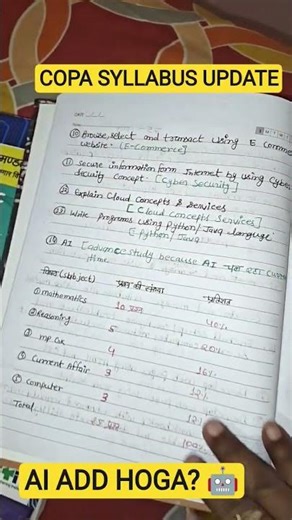 COPA SYLLABUS UPDATE
⑩ Browse, select and transact using E Commerce
website. [E-Commerce]
⑪ secure information from Internet by using Cyber
Security concept. [Cyber Security]
Explain Cloud concepts & Services
[Cloud concepts Services]
Write Programs using Python/Java language
[Python/Java]
AI [advance study because AI
time
विषय (Subject) प्रश्नों की संख्या प्रतिशत
① mathematics 10 प्रश्न 40%
② Reasoning 5 20%
③ mp. GK 4 16%
Current Affair 3 12%
Computer 3 12%
Total 25 प्रश्न 100%
AI ADD HOGA? 🤖